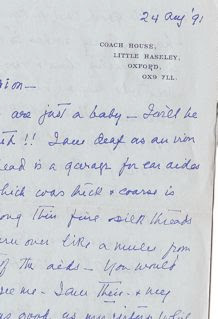 24 Aug '91
COACH HOUSE,
LITTLE HASELEY,
OXFORD,
OX9 7LL.
are just a baby – I will be
!! I am deaf as an iron
head is a garage for ear aides
which was thick & coarse is
long thin fine silk threads
over like a mule from
of the aids – You would
see me – I am thin – & my
as good as my